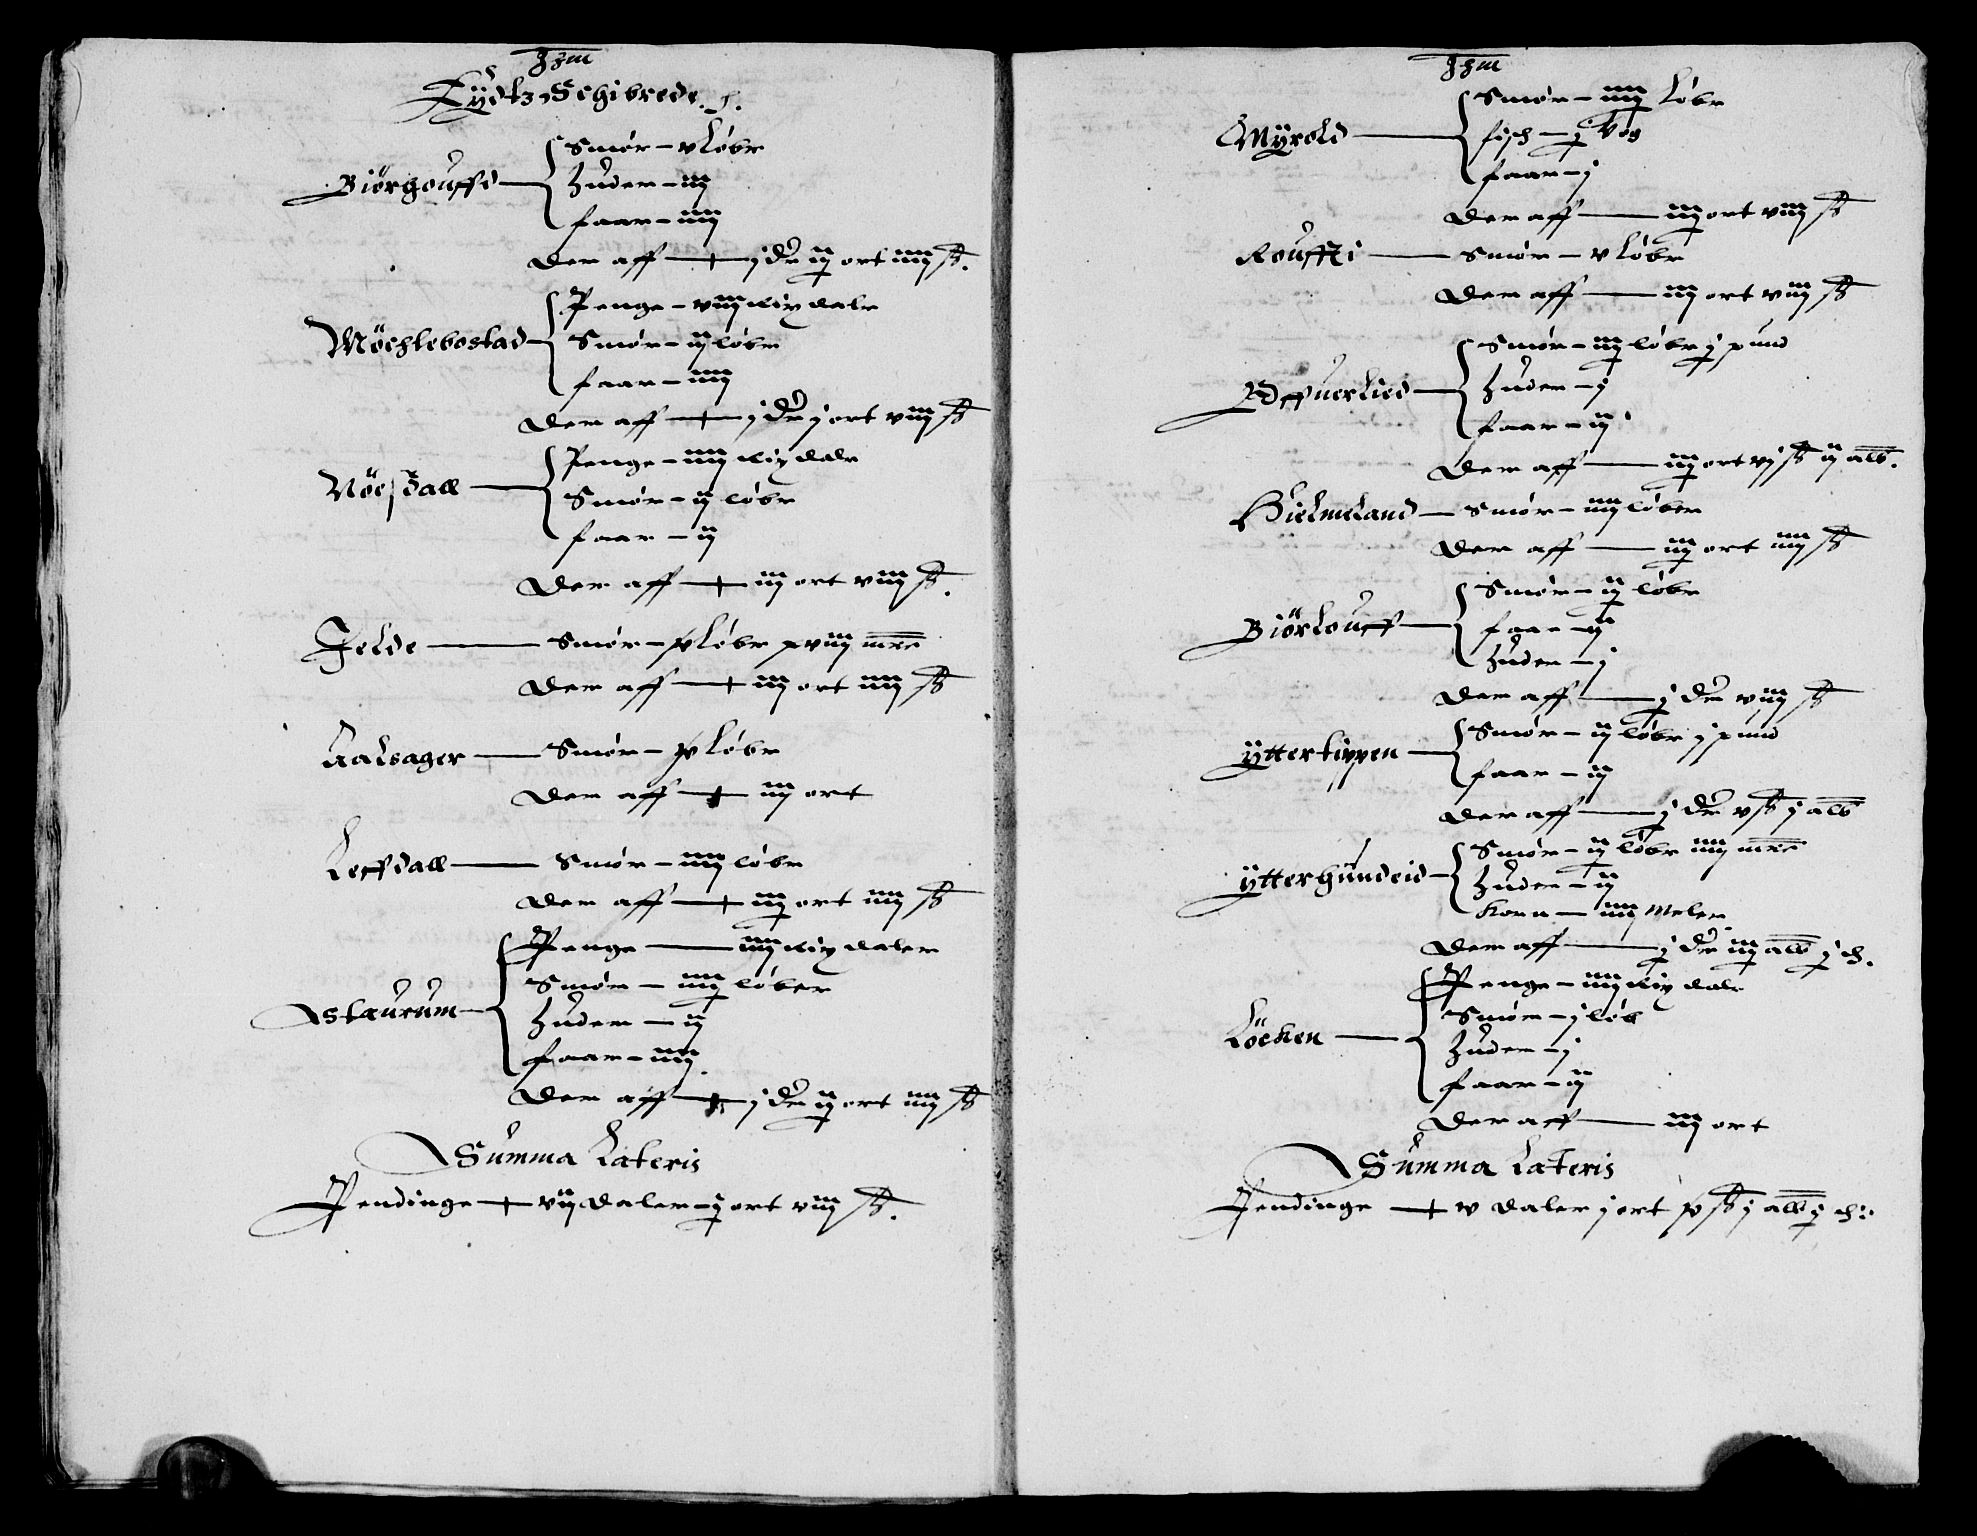 Jzm
Eydtz Schibrede.
Biörgouffd
Smør – v Løbr
Huder – iij
faar – iiij
Der aff – j dr ij ort iiij ß.
Möchlebostad
Penge – viij Rix dalr
Smør – ij løbr
faar – iiij
Der aff – j dr j ort viij ß
Nöesdall
Penge – iiij Rix dalr
Smør – ij løbr
faar – ij
Der aff – iij ort viij ß.
Jelde – Smør – Løbr xviij mrc
Der aff – iij ort iiij ß
Aalsager – Smør – Løbr
Der aff – iij ort
Leffdall – Smør – iiij løbr
Der aff – iij ort iiij ß
Staurum
Penge – iiij Rix daler
Smør – iiij løber
Huder – ij
faar – iiij.
Der aff – j dr ij ort iiij ß
Summa Lateris
Pendinge – vij daler ij ort viij ß.
Jzm
Myrold
Smør – iiij Løbr
fisch – j Vog
faar – j
Der aff – iij ort viij ß
Rouffti – Smør – v Løbr
Der aff – iij ort viij ß
Smør – iij løbr j pund
Huder – j
faar – ij
Der aff – iij ort vj ß ij alb.
Hielmeland – Smør – iiij løber
Der aff – iij ort iiij ß
Biörlouff
Smør – ij løbr
faar – ij
Huder – j
Der aff – j dr viij ß
Yttertippen
Smør – ij løbr j pund
faar – ij
Der aff – j dr v ß j alb
Ytterhundeid
Smør – ij løbr iiij mrc
Huder – ij
Korn – iiij meler
Der aff – j dr iij alb j ch.
Löcken
Penge – iiij Rix dalr
Smør – j løb
Huder – j
faar – ij
Der aff – iij ort
Summa Lateris
Pendinge – v daler j ort ß j alb j ch: